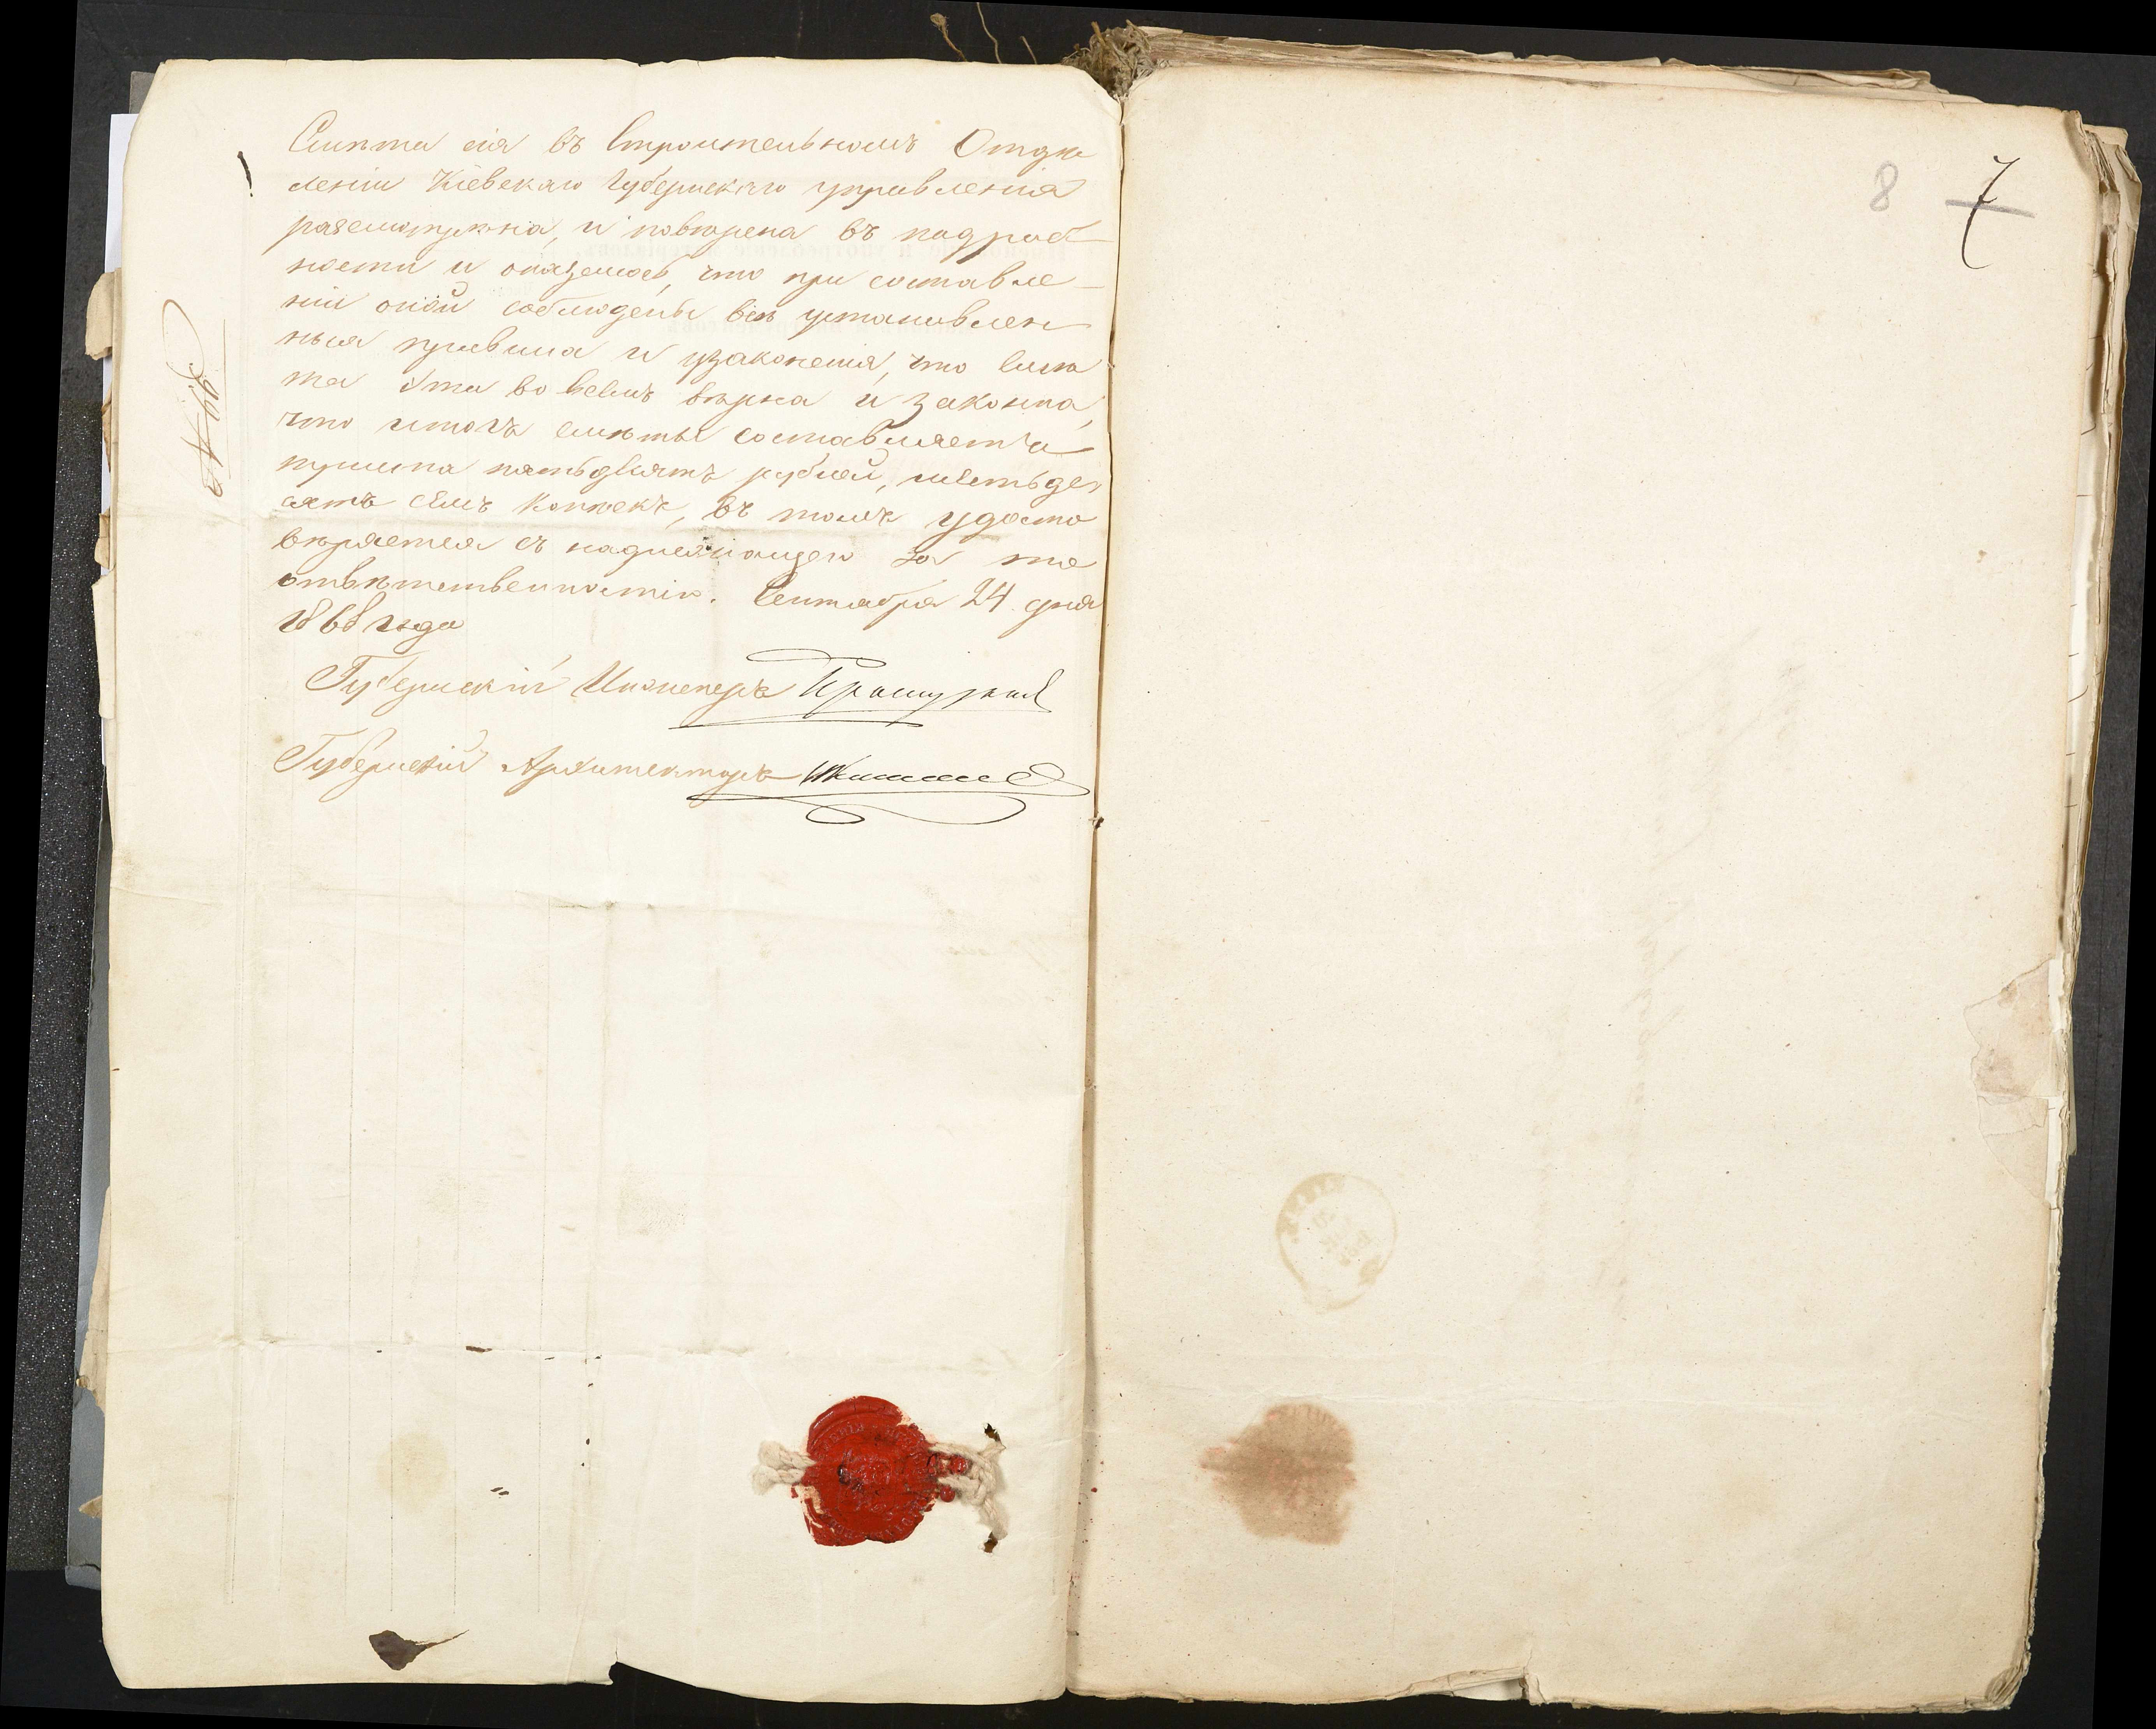 Смѣта сія въ Строительномъ Отдѣ
леніи Кіевскаго Губернскаго управленія
разсмотрѣна, и повѣрена въ подроб-
ности и оказалось, что при составле-
ніи оной соблюдены всѣ установлен
ныя правила и узаконенія, что смѣ
та эта во всемъ вѣрна и законна,
что итогъ смѣты составляетъ
триста пятьдесятъ рублей, шестьде
сятъ семь копѣекъ, въ томъ удосто
вѣряется съ надлежащею за то
отвѣтственностію. Сентября 24 дня
1868 года
Губернскій Инженеръ
Губернскій Архитекторъ
8 7